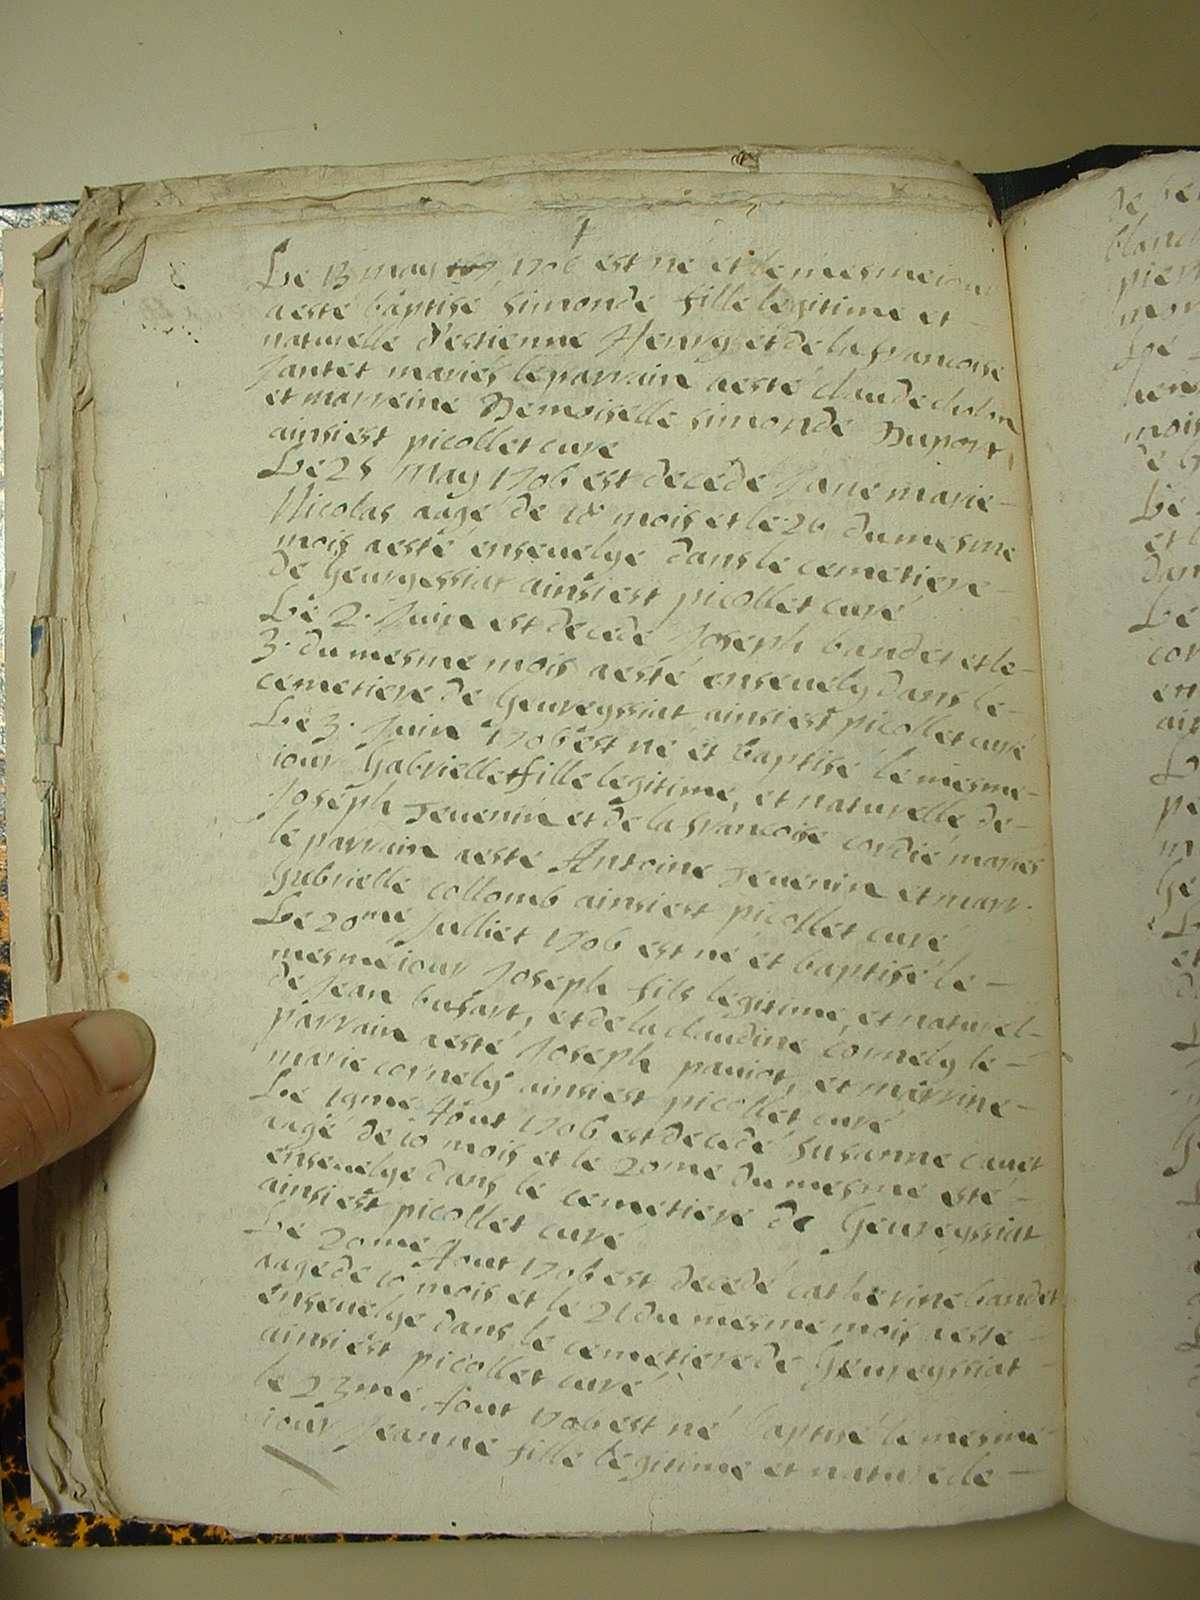 Le 13 may 1706 est né et le mesme iour
a esté baptisé simonde fille legitime et
naturelle d'estienne Henry et de la francoise
Jantet mariés le parrain a esté claude
et marreine Demoiselle simonde Duport
ainsi est picollet curé
Le 25 May 1706 est decede Jane marie
Nicolas aagé de 18 mois et le 26 du mesme
mois a esté enseuelye dans le cemetiere
de Geurgessiat ainsi est picollet curé
Le 2. Juin est decede Joseph bandet et le
3. du mesme mois a esté enseuely dans le
cemetiere de Geureyssiat ainsi est picollet curé
Le 3. Juin 1706 est né et baptisé le mesme
iour Gabrielle fille legitime, et naturelle de
Joseph Teuenin et de la francoise cordié mariés
le parrain a esté Antoine Teuenin et marr.
Gabrielle collomb ainsi est picollet curé
Le 20me Julliet 1706 est né et baptisé le
mesme iour Joseph fils legitime, et naturel
de Jean busart, et de la claudine cornely le
parrain a esté Joseph pauiot, et marrine
marie cornely ainsi est picollet curé
Le 19me Aout 1706 est decedé susanne cauet
aagé de 10 mois et le 20me du mesme esté
enseuelye dans le cemetiere de Geureyssiat
ainsi est picollet curé
Le 20me Aout 1706 est decedé catherine bandet
aagé de 10 mois et le 21 du mesme mois a esté
enseuelye dans le cemetiere de Geureyssiat
ainsi est picollet curé
le 23me Aout 1706 est né baptisé le mesme
iour Jeanne fille legitime et naturelle